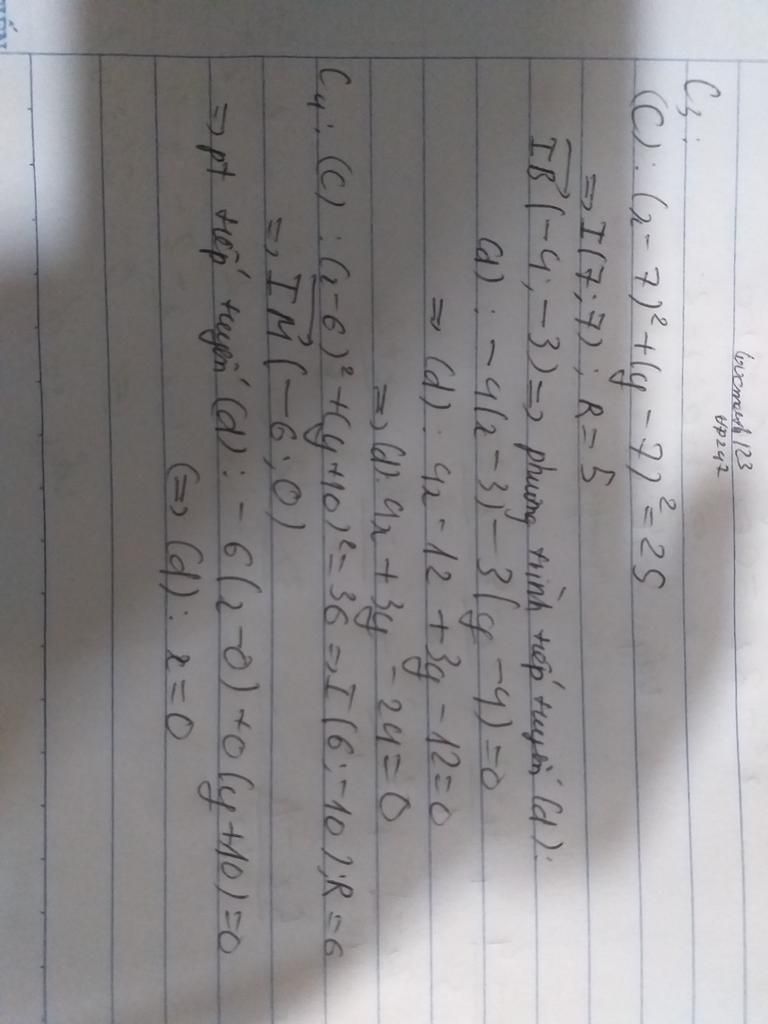 C3:
(C): (x-7)² + (y-7)² = 25
=> I(7;7); R = 5
IB (-4; -3) => phương trình tiếp tuyến (d):
(d): -4(x-3) - 3(y-4) = 0
=> (d): 4x - 12 + 3y - 12 = 0
=> (d): 4x + 3y - 24 = 0
C4: (C): (x-6)² + (y+10)² = 36 => I(6; -10); R = 6
=> IM (-6; 0)
=> pt tiếp tuyến (d): -6(x-0) + 0(y+10) = 0
(=> (d): x = 0